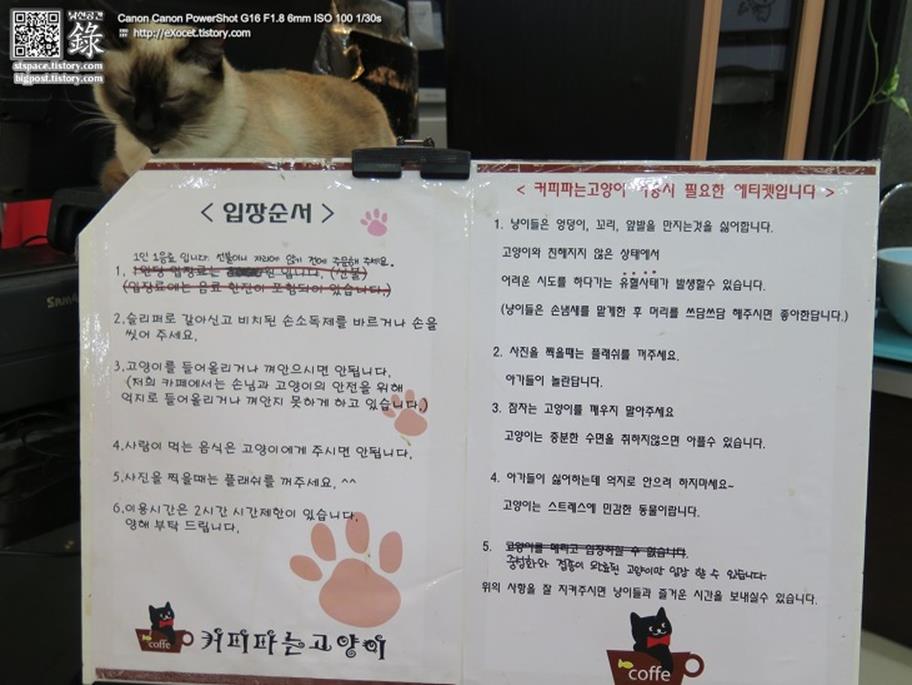 남산공간
錄
stspace.tistory.com
bigpost.tistory.com
Canon Canon PowerShot G16 F1.8 6mm ISO 100 1/30s
http://eXocet.tistory.com
SAMS
< 입장순서 >
1인 1음료 입니다. 선불이니 자리에 앉기 전에 주문해 주세요.
1. 1인당 입장료는 원 입니다. (선불)
(입장료에는 음료 한잔이 포함되어 있습니다.)
2.슬리퍼로 갈아신고 비치된 손소독제를 바르거나 손을
씻어 주세요.
3.고양이를 들어올리거나 껴안으시면 안됩니다.
(저희 카페에서는 손님과 고양이의 안전을 위해
억지로 들어올리거나 껴안지 못하게 하고 있습니다.)
4.사람이 먹는 음식은 고양이에게 주시면 안됩니다.
5.사진을 찍을때는 플래쉬를 꺼주세요. ^^
6.이용시간은 2시간 시간제한이 있습니다.
양해 부탁 드립니다.
coffe
커피파는고양이
< 커피파는고양이 이용시 필요한 에티켓입니다 >
1. 냥이들은 엉덩이, 꼬리, 앞발을 만지는것을 싫어합니다.
고양이와 친해지지 않은 상태에서
어려운 시도를 하다가는 유혈사태가 발생할수 있습니다.
(냥이들은 손냄세를 맡게한 후 머리를 쓰담쓰담 해주시면 좋아한답니다.)
2. 사진을 찍을때는 플래쉬를 꺼주세요.
아가들이 놀란답니다.
3. 잠자는 고양이를 깨우지 말아주세요
고양이는 충분한 수면을 취하지않으면 아플수 있습니다.
4. 아가들이 싫어하는데 억지로 안으려 하지마세요~
고양이는 스트레스에 민감한 동물이랍니다.
5. 고양이를 데리고 입장하실 수 없습니다.
중성화와 접종이 완료된 고양이만 입장 할 수 있습니다.
위의 사항을 잘 지켜주시면 냥이들과 즐거운 시간을 보내실수 있습니다.
coffe